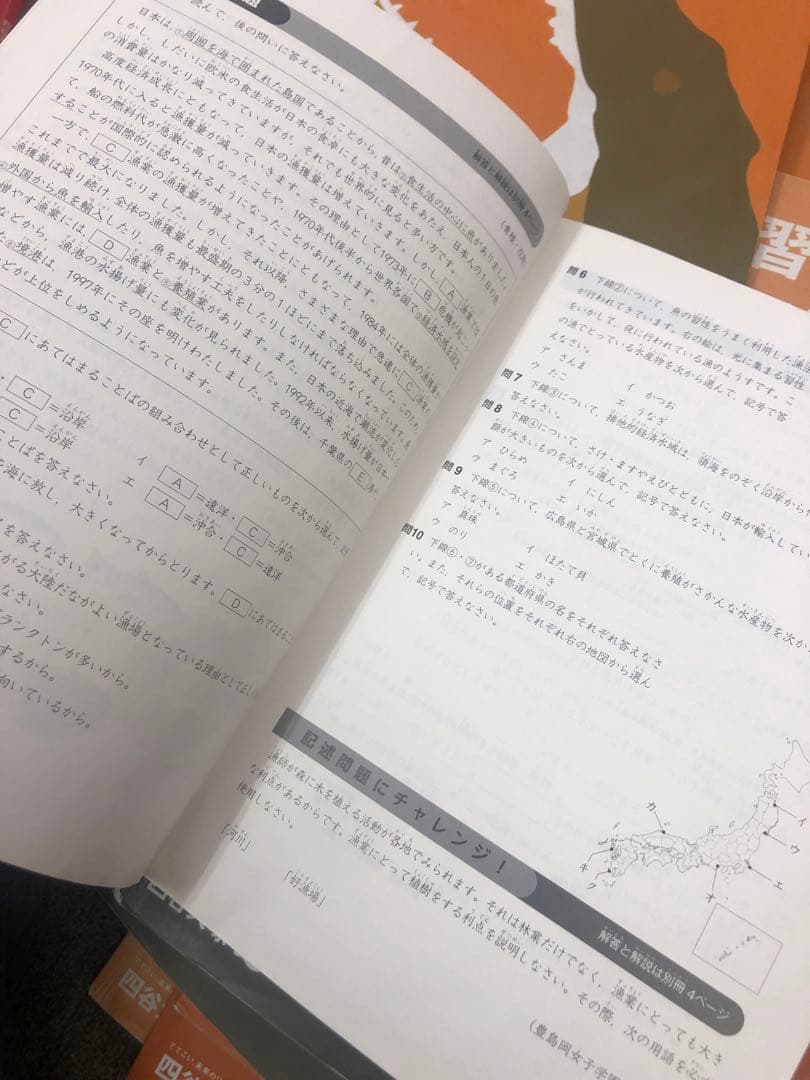 題
読んで、後の問いに答えなさい。
日本は、①周囲を海で囲まれた島国であることから、昔は②食生活の中心に魚がありました。
しかし、しだいに欧米の食生活が日本の食卓にも大きな変化をあたえ、日本人の1日の魚
の消費量はかなり減ってきていますが、それでも世界的に見ると多い方です。
高度経済成長にともなって、日本の漁獲量は増えていきます。しかし、A漁業では
1970年代に入ると漁獲量が減っていきます。その理由として1973年にB危機が起こっ
て、船の燃料代が急激に高くなったことや、1970年代後半から世界各国で③経済水域を設定
することが国際的に認められるようになったことがあげられます。
一方で、C漁業の漁獲量が増えてきたことにともなって、1984年には全体の漁獲量が
これまでで最大になりました。しかし、それ以降、さまざまな理由で急速にC漁業の
漁獲量は減り続け、全体の漁獲量も最盛期の3分の1ほどにまで落ち込みました。このため、
④外国から魚を輸入したり、魚を増やす工夫をしたりしなければならなくなっています。
増やす漁業には、D漁業と⑤養殖業があります。また、日本の近海で潮流が変化した
などから、漁港の水揚げ量にも変化が見られました。1992年以来、水揚げ量が日本一
た⑥境港は、1997年にその座を明けわたしました。その後は、千葉県のE港
どが上位をしめるようになっています。
Cにあてはまることばの組み合わせとして正しいものを次から選んで、記号
・C=沿岸
イ A=遠洋・C=沖合
C=沿岸
エ A=沖合・C=遠洋
ことばを答えなさい。
と海に放し、大きくなってからとります。Dにあてはまること
を答えなさい。
がる大陸だながよい漁場となっている理由として正し
なさい。
プランクトンが多いから。
するから。
向いているから。
解答と解説は別冊4ページ
問6 下線②について、魚の習性をうまく利用した漁法
が行われてきています。右の絵は、光に集まる習性
をいかして、夜に行われている漁のようすです。こ
の漁でとっている水産物を次から選んで、記号で答
えなさい。
ア さんま
イ かつお
ウ たこ
エ うなぎ
問7 下線③について、排他的経済水域は、領海をのぞく沿岸から
答えなさい。
問8 下線④について、さけ・ますやえびとともに、日本が輸入してい
額が大きいものを次から選んで、記号で答えなさい。
ア ひらめ
イ にしん
ウ まぐろ
エ いか
問9 下線⑤について、広島県と宮城県でとくに養殖がさかんな水産物を次から
答えなさい。
ア 真珠
イ ほたて貝
ウ のり
エ かき
問10 下線⑥・⑦がある都道府県の名をそれぞれ答えなさ
い。また、それらの位置をそれぞれ右の地図から選ん
で、記号で答えなさい。
イ
ウ
エ
オ
カ
キ
ク
記述問題にチャレンジ!
解答と解説は別冊4ページ
漁師が森に木を植える活動が各地でみられます。それは林業だけでなく、漁業にとっても大き
な利点があるからです。漁業にとって植樹をする利点を説明しなさい。その際、次の用語を必ず
使用しなさい。
「河川」
「好漁場」
(豊島岡女子学園
習
四谷
四谷